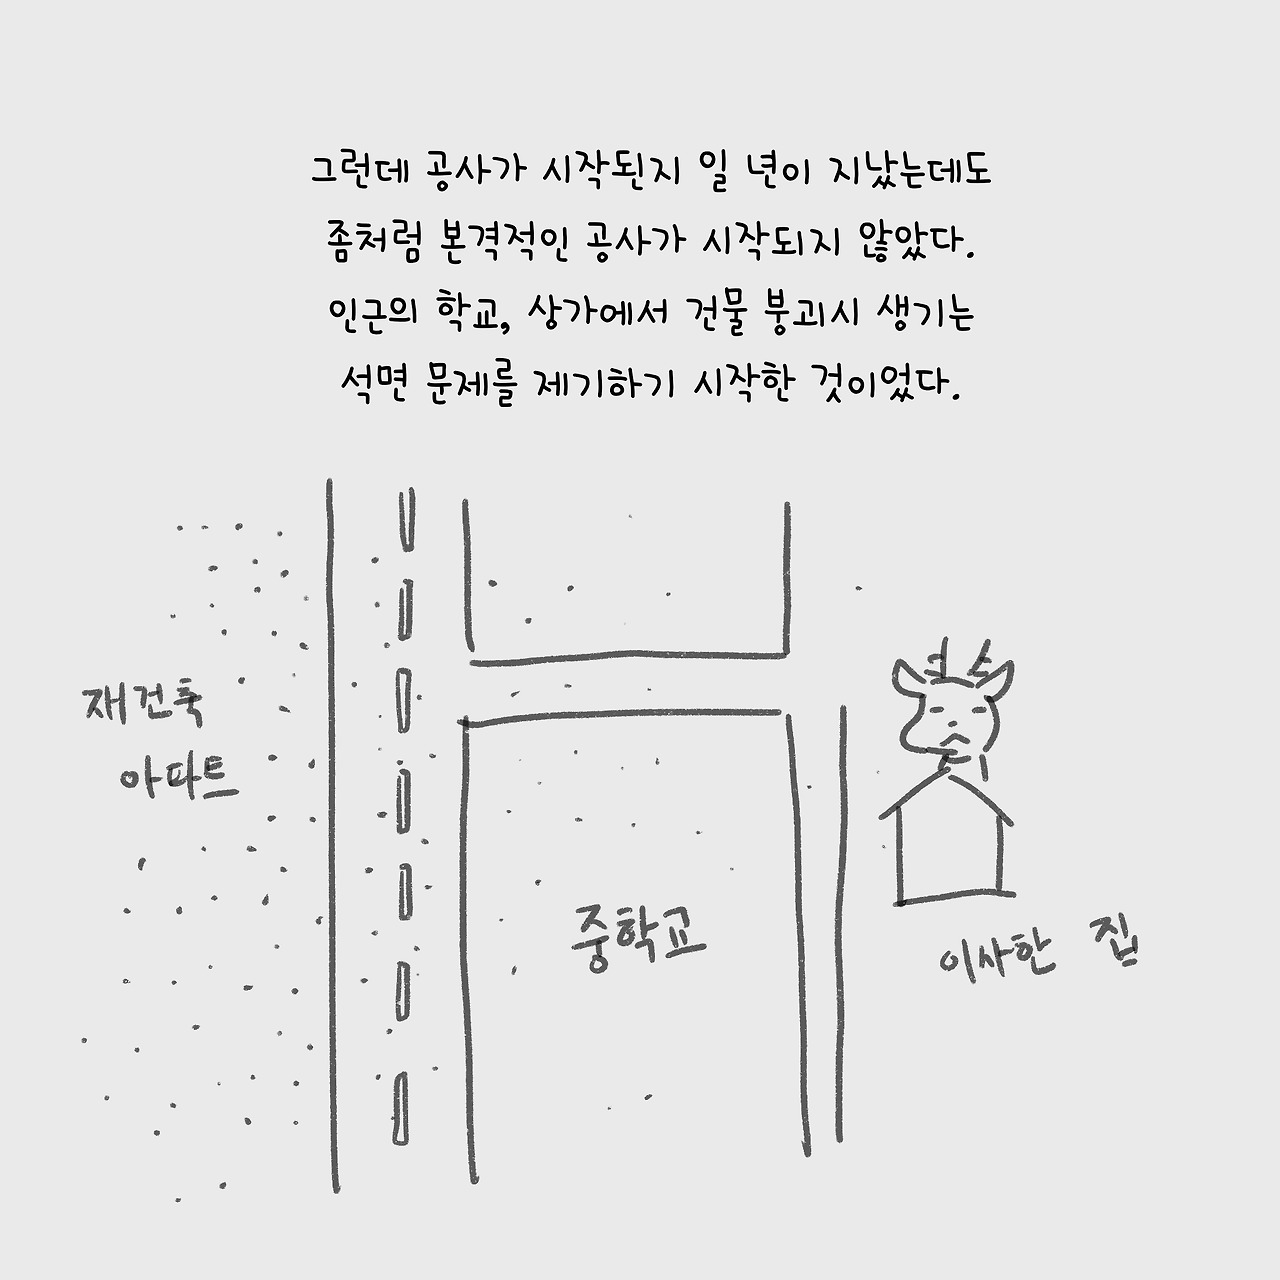 그런데 공사가 시작된지 일 년이 지났는데도
좀처럼 본격적인 공사가 시작되지 않았다.
인근의 학교, 상가에서 건물 붕괴시 생기는
석면 문제를 제기하기 시작한 것이었다.
재건축
아파트
중학교
이사한 집